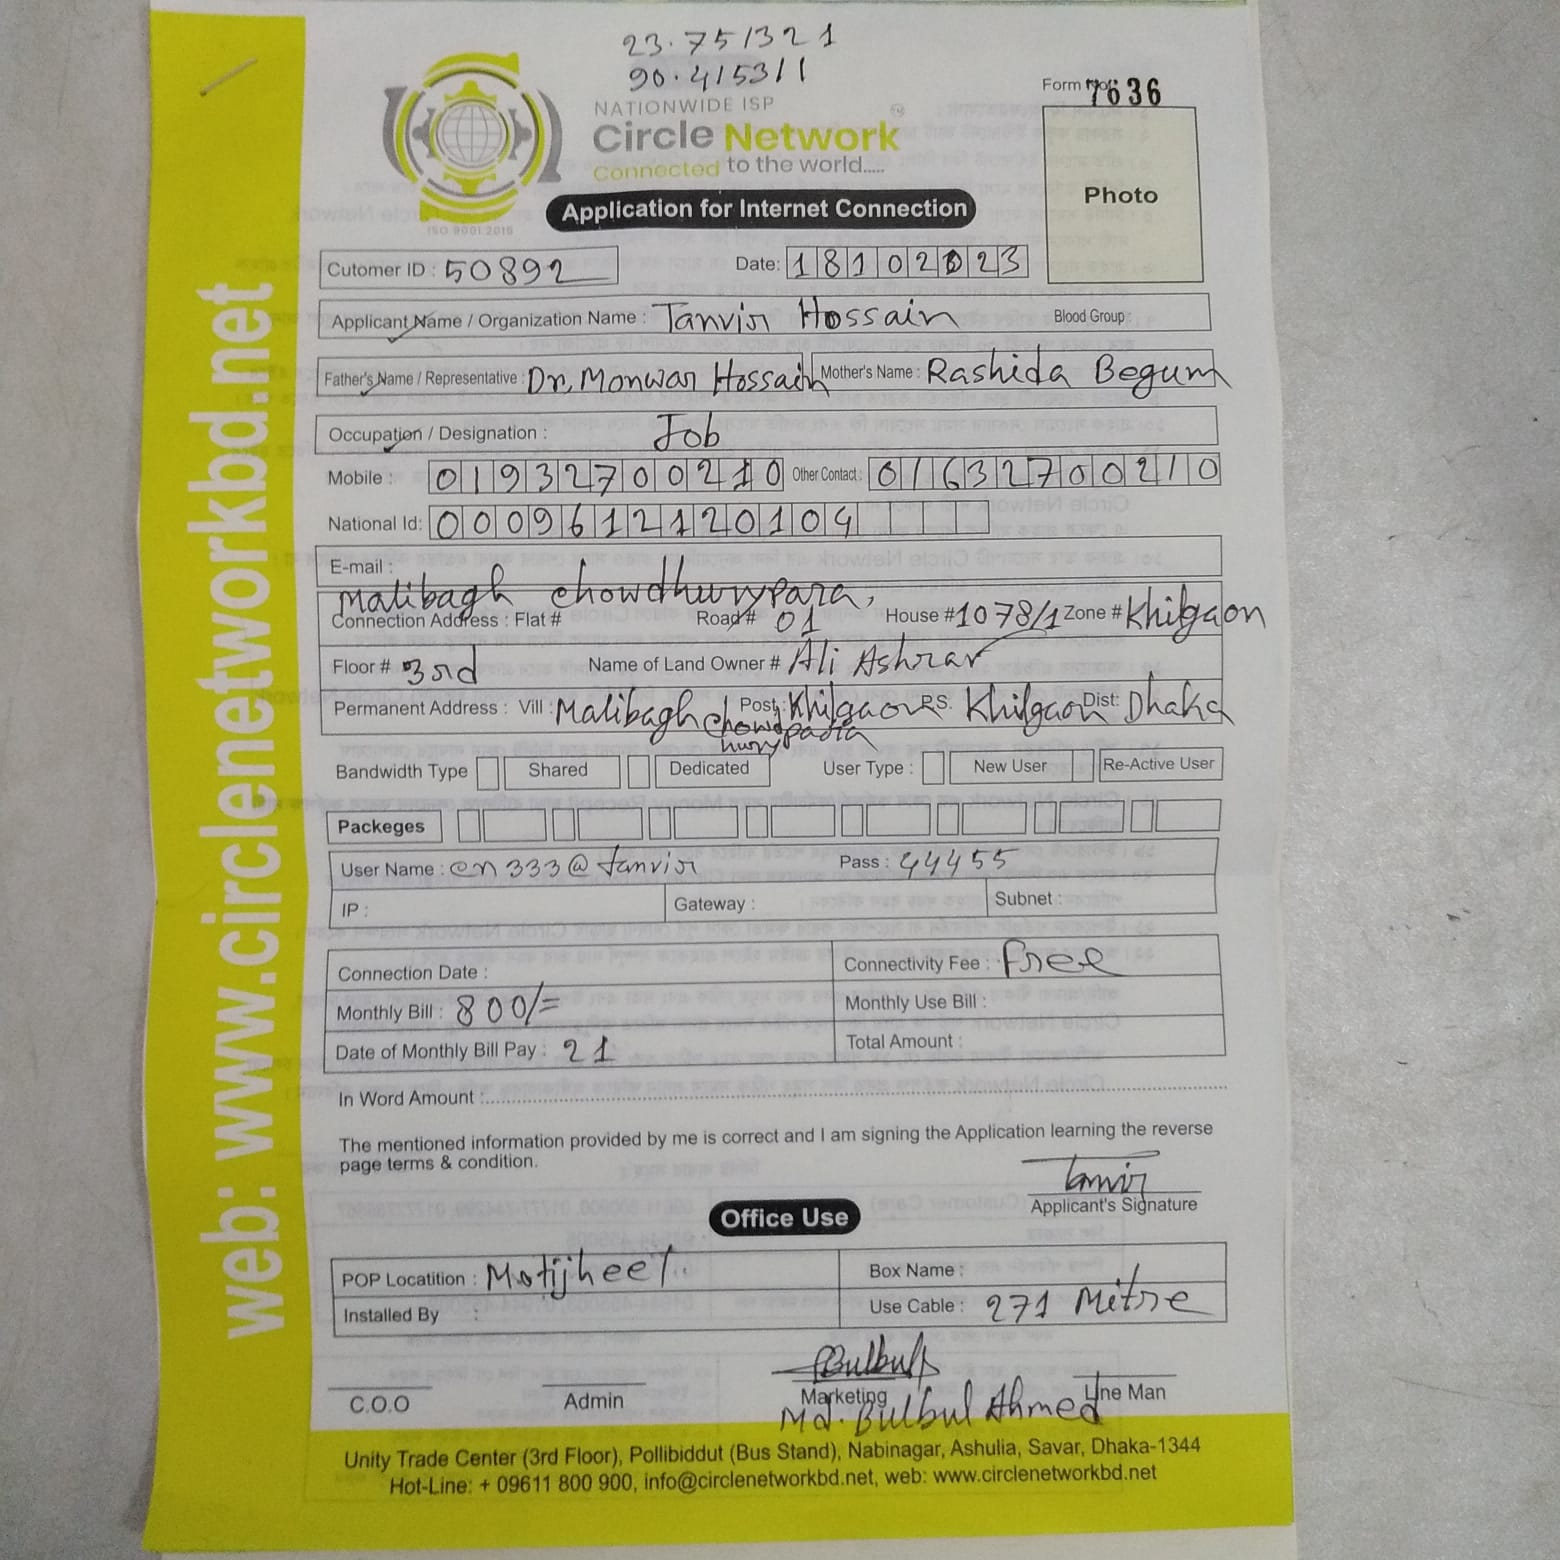 23.751321
90.415311
NATIONWIDE ISP
Circle Network
Connected to the world.....
ISO 9001:2015
Form No: 7636
Photo
Application for Internet Connection
Cutomer ID : 50892 Date: 18102023
Applicant Name / Organization Name : Tanvir Hossain Blood Group:
Father's Name / Representative : Dr. Monwar Hossain Mother's Name : Rashida Begum
Occupation / Designation : Job
Mobile : 01932700210 Other Contact : 01632700210
National Id: 0009612120104
E-mail :
Malibagh chowdhurypara,
Connection Address : Flat # Road# 01 House # 1078/1 Zone # Khilgaon
Floor # 3rd Name of Land Owner # Ali Ashrar
Permanent Address : Vill : Malibagh chowdhurypara Post: Khilgaon P.S. Khilgaon Dist: Dhaka
Bandwidth Type Shared Dedicated User Type : New User Re-Active User
Packeges
User Name : cn333@tanvir Pass : 44455
IP : Gateway : Subnet :
Connection Date : Connectivity Fee : free
Monthly Bill : 800/= Monthly Use Bill :
Date of Monthly Bill Pay : 21 Total Amount :
In Word Amount :
The mentioned information provided by me is correct and I am signing the Application learning the reverse
page terms & condition.
Tanvir
Applicant's Signature
Office Use
POP Locatition : Motijheel. Box Name :
Installed By : Use Cable : 271 Mitre
Bulbul
C.O.O Admin Marketing Line Man
Md. Bulbul Ahmed
Unity Trade Center (3rd Floor), Pollibiddut (Bus Stand), Nabinagar, Ashulia, Savar, Dhaka-1344
Hot-Line: + 09611 800 900, info@circlenetworkbd.net, web: www.circlenetworkbd.net
web: www.circlenetworkbd.net